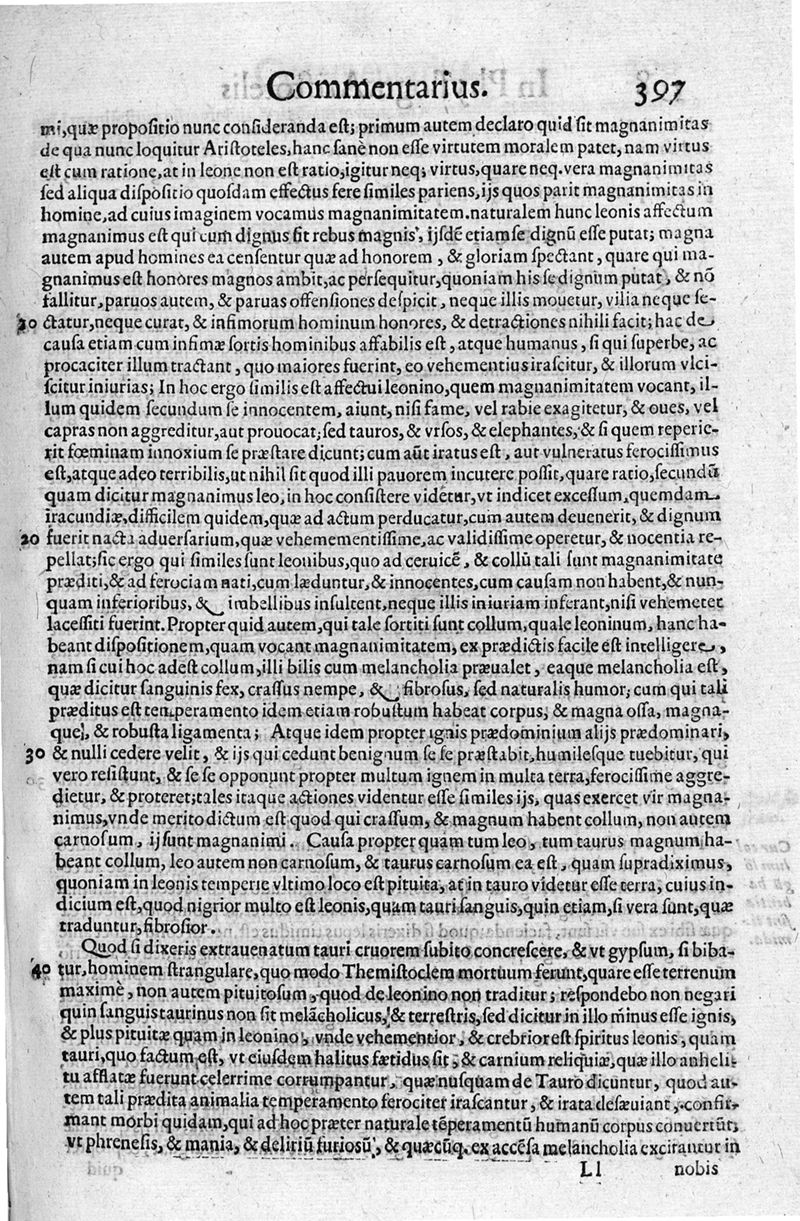 Commentarius. 397
mi, quæ propositio nunc consideranda est; primum autem declaro quid sit magnanimitas
de qua nunc loquitur Aristoteles, hanc sanè non esse virtutem moralem patet, nam virtus
est cum ratione, at in leone non est ratio, igitur neq; virtus, quare neq. vera magnanimitas
sed aliqua dispositio quosdam effectus fere similes pariens, ijs quos parit magnanimitas in
homine, ad cuius imaginem vocamus magnanimitatem. naturalem hunc leonis affectum
magnanimus est qui cum dignus sit rebus magnis, ijsdē etiam se dignū esse putat; magna
autem apud homines ea censentur quæ ad honorem, & gloriam spectant, quare qui ma-
gnanimus est honores magnos ambit, ac persequitur, quoniam his se dignum putat, & nō
fallitur, paruos autem, & paruas offensiones despicit, neque illis mouetur, vilia neque se-
10 ctatur, neque curat, & infimorum hominum honores, & detractiones nihili facit; hac de
causa etiam cum infimæ sortis hominibus affabilis est, atque humanus, si qui superbe, ac
procaciter illum tractant, quo maiores fuerint, eo vehementius irascitur, & illorum vlci-
scitur iniurias; In hoc ergo similis est affectui leonino, quem magnanimitatem vocant, il-
lum quidem secundum se innocentem, aiunt, nisi fame, vel rabie exagitetur, & oues, vel
capras non aggreditur, aut prouocat; sed tauros, & vrsos, & elephantes, & si quem reperie-
rit fœminam innoxium se præstare dicunt; cum aūt iratus est, aut vulneratus ferocissimus
est, atque adeo terribilis, ut nihil sit quod illi pauorem incutere possit, quare ratio, secundū
quam dicitur magnanimus leo, in hoc consistere videtur, vt indicet excessum quemdam
iracundiæ, difficilem quidem, quæ ad actum perducatur, cum autem deuenerit, & dignum
20 fuerit nacta aduersarium, quæ vehemementissime, ac validissime operetur, & nocentia re-
pellat; sic ergo qui similes sunt leonibus, quo ad ceruicē, & collū tali sunt magnanimitate
præditi, & ad ferociam nati, cum læduntur, & innocentes, cum causam non habent, & nun-
quam inferioribus, & imbellibus insultent, neque illis iniuriam inferant, nisi vehemeter
lacessiti fuerint. Propter quid autem, qui tale sortiti sunt collum, quale leoninum, hanc ha-
beant dispositionem, quam vocant magnanimitatem, ex prædictis facile est intelligere,
nam si cui hoc adest collum, illi bilis cum melancholia præualet, eaque melancholia est,
quæ dicitur sanguinis fex, crassus nempe, & fibrosus, sed naturalis humor; cum qui tali
præditus est temperamento idem etiam robustum habeat corpus, & magna ossa, magna-
que, & robusta ligamenta; Atque idem propter ignis prædominium alijs prædominari,
30 & nulli cedere velit, & ijs qui cedunt benignum se se præstabit, humilesque tuebitur, qui
vero resistunt, & se se opponunt propter multum ignem in multa terra, ferocissime aggre-
dietur, & proteret; tales itaque actiones videntur esse similes ijs, quas exercet vir magna-
nimus, vnde merito dictum est quod qui crassum, & magnum habent collum, non autem
carnosum, ij sunt magnanimi. Causa propter quam tum leo, tum taurus magnum ha-
beant collum, leo autem non carnosum, & taurus carnosum ea est, quam supradiximus,
quoniam in leonis temperie vltimo loco est pituita, at in tauro videtur esse terra, cuius in-
dicium est, quod nigrior multo est leonis, quam tauri sanguis, quin etiam, si vera sunt, quæ
traduntur, fibrosior.
Quod si dixeris extrauenatum tauri cruorem subito concrescere, & vt gypsum, si biba-
40 tur, hominem strangulare, quo modo Themistoclem mortuum ferunt, quare esse terrenum
maximè, non autem pituitosum, quod de leonino non traditur; respondebo non negari
quin sanguis taurinus non sit melācholicus, & terrestris, sed dicitur in illo minus esse ignis,
& plus pituitæ quam in leonino, vnde vehementior, & crebrior est spiritus leonis, quam
tauri, quo factum est, vt eiusdem halitus fætidus sit, & carnium reliquiæ, quæ illo anheli-
tu afflatæ fuerunt celerrime corrumpantur, quæ nusquam de Tauro dicuntur, quod au-
tem tali prædita animalia temperamento ferociter irascantur, & irata desæuiant, confir-
mant morbi quidam, qui ad hoc præter naturale tēperamentū humanū corpus conuertūt,
vt phrenesis, & mania, & deliriū furiosū, & quæcūq. ex accēsa melancholia excirantur in
Ll nobis